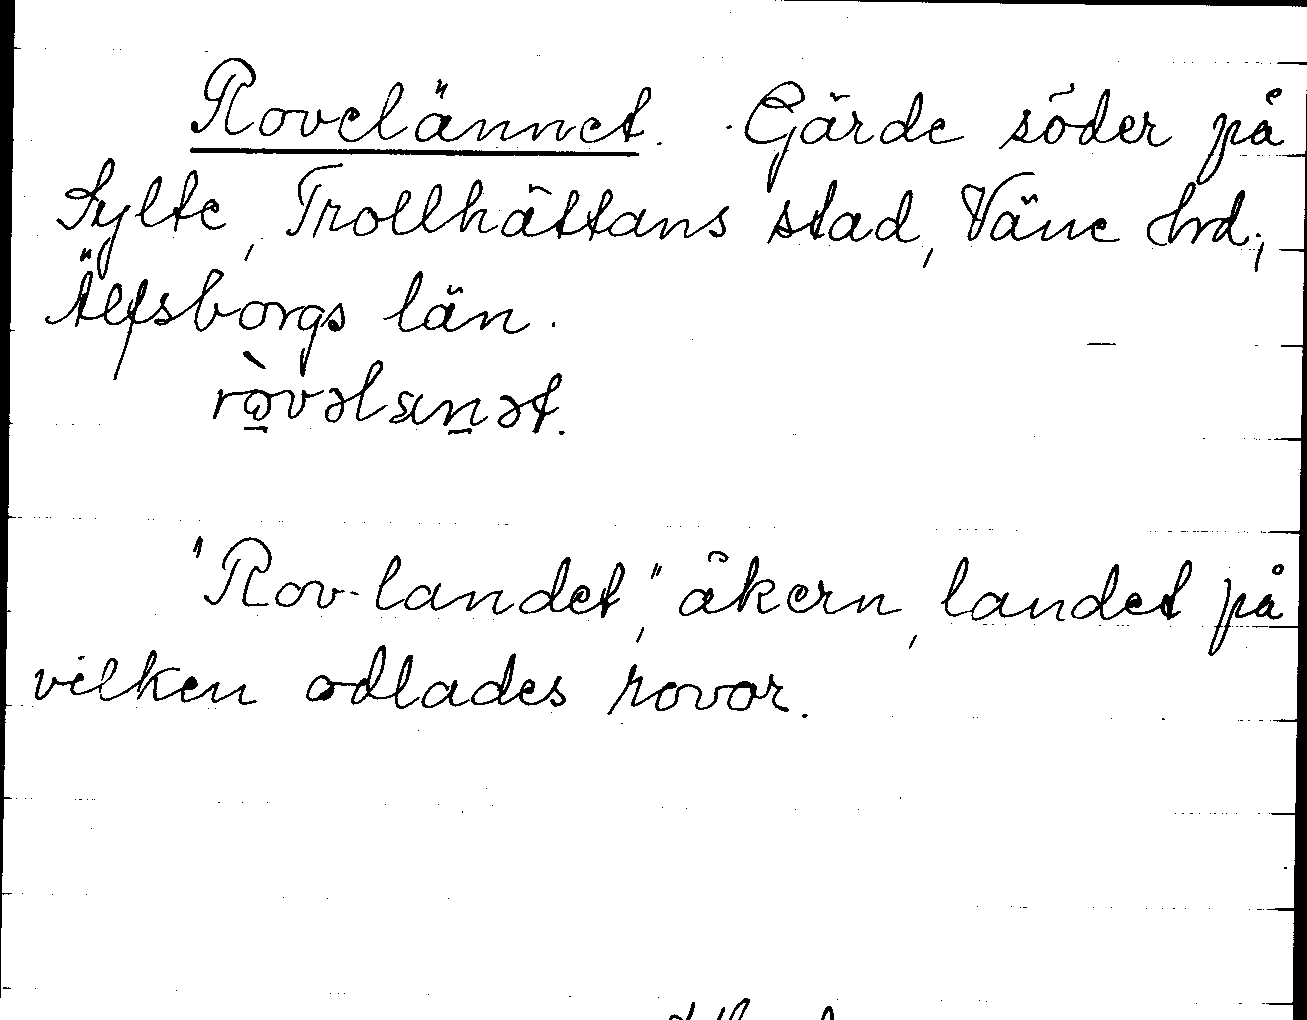 Rovelännet. Gärde söder på
Sylte, Trollhättans stad, Väne hrd,
Älfsborgs län.
"Rov-landet," åkern, landet på
vilken odlades rovor.